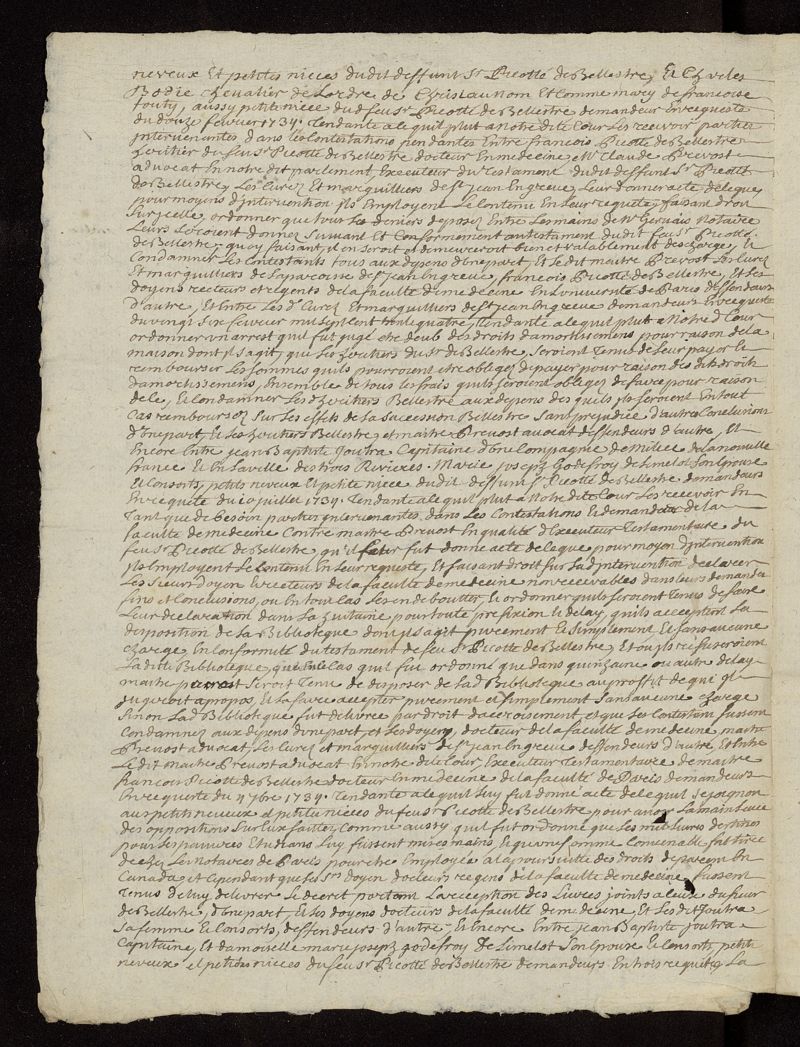 neveux Et petittes nieces dudit deffunt Sr. Picotté de Bellestre, Et Charles
Bodie chevalier de Lordre de Christ au nom Et Comme mary de francoise
Jouty, aussy petite niece dud feu Sr. Picotté de Bellestre demandeur En requeste
du douze fevrier 1734. tendante a ce quil plut a Notre dite Cour Les recevoir parties
jntervenantes dans les Contestations pendantes Entre francois Picotté de Bellestre
heritier du feu Sr. Picotté de Bellestre docteur En medecine, Me. Claude Prevost
advocat En notre dit parlement, Executeur du Testament dudit deffunt Sr. Picotté
de Bellestre, Les Curé Et marguilliers de St. jean En greve, Leur donner acte de ce que
pour moyens d'jntervention jls Employent Le Contenu En Leur requeste, faisant droit
Sur jcelle, ordonner que tous Les deniers deposez Entre Les mains de Me Gervais Notaire
Leurs Seroient donnez Suivant Et Conformement au testament dudit feu Sr. Picotté
de Bellestre, quoy faisant, jl en Seroit et demeureroit bien et valablement dechargé, Et
Condamner Les Contestants tous aux depens d'une part, Et Ledit maitre Prevost Les Curé
Et marguilliers de La parroisse de St. jean En greve, francois Picotté de Bellestre, Et Les
doyens recteurs et regents de la faculté de medecine En Luniversité de Paris deffendeurs
d'autre, Et Entre Les ds. Curé Et marguilliers de St. jean En greve demandeurs En requeste
du vingt Six fevrier mil Sept Cent trente quatre, Tendante a ce quil plut a Notred Cour
ordonner un arrest qui fut jugé etre deub des droits damortissement pour raison de la
maison dont jl s'agit, que Les heritiers du Sr. de Bellestre Seroient Tenus de Leur payer Et
rembourser Les sommes quils pourroient etre obligez de payer pour raison des dits droits
damortissemens, Ensemble de tous les frais quils seroient obligez de faire pour raison
de ce, Et Condamner Les heritiers Bellestre aux depens des quels jls seroient En tout
Cas remboursez Sur Les effets de la Succession Bellestre Sans prejudice d'autres Conclusions
d'une part, Et Les heritiers Bellestre et maitre Prevost avocat deffendeurs d'autre, Et
Encore Entre jean Baptiste Joutra Capitaine d'une Compagnie de Milice de la nouvelle
france Et En la ville des trois Rivieres, Marie joseph Godefroy de Limelot Son Epouse
Et Consorts, petits neveux Et petite niece dudit deffunt Sr. Picotté de Bellestre demandeurs
En requete du 10 juillet 1734. Tendante a ce quil plut a Notre dite Cour Les recevoir En
Tant que de besoin parties jntervenantes, dans Les Contestations Et demandes de la
faculté de medecine Contre maitre Prevost En qualité d'Executeur Testamentaire du
feu Sr. Picotté de Bellestre, qu'il leur fut donné acte de ce que pour moyen d'jntervention
jls Employent Le Contenu En Leur requeste, Et faisant droit Sur Lad jntervention declarer
Les Sieurs doyen Et recteurs de la faculté de medecine non recevables dans leurs demandes
fins et Conclusions, ou En tout Cas Les en debouter, Et ordonner quils seroient tenus de faire
Leur declaration dans La huitaine pour toute prefixion Et delay, quils acceptent La
disposition de La Bibliotheque dont jl s'agit purement Et Simplement Et sans aucune
charge, En Conformité du testament de feu Sr. Picotté de Bellestre, Et ou jls refuseroient
Ladite Bibliotheque, qu'En Ce Cas quil fut ordonné que dans quinzaine, ou autre delay
maitre prevost Seroit Tenu de disposer de Lad Bibliotheque au proffit de qui jl
jugeroit apropos, Et La faire accepter purement et simplement Sans aucune charge
Sinon Lad Bibliotheque fut delivrée par droit daccroissement, et que Les Contestans fussent
Condamnez aux depens d'une part, et Les doyens, docteur de la faculté de medecine, maitre
Prevost advocat, Les Curé et marguilliers de St. jean En greve deffendeurs d'autre, Et Entre
Le dit maitre Prevost advocat En notre dite Cour Executeur Testamentaire de maitre
francois Picotté de Bellestre docteur En medecine de la faculté de Paris demandeurs
En requeste du 4 7bre 1734. Tendante a ce quil Luy fut donné acte de ce quil Se joignoit
aux petit neveux et petite nieces du feu Sr. Picotté de Bellestre pour avoir La main Levée
des oppositions Sur Eux faittes, Comme aussy quil fut ordonné que Les mil Livres destinés
pour Les pauvres Etudians Luy fussent mises es mains, Et qu'une somme Convenable fut tirée
de chez Les notaires de Paris pour etre Employée a La poursuitte des droits de parent En
Canada, et Cependant que Les Srs. doyen docteurs regens de la faculté de medecine, fussent
Tenus de Luy delivrer Le decret portant La reception des Livres joints a Ceux du Sieur
de Bellestre, d'une part, Et Les doyens docteurs de la faculté de medecine, Et Les dit Joutra
Sa femme Et Consorts, deffendeurs d'autre, Et Encore Entre jean Baptiste joutra
Capitaine, Et damoiselle marie joseph Godefroy de Limelot Son Epouse Et Consorts petits
neveux et petittes nieces du feu Sr. Picotté de Bellestre demandeurs En trois requetes La